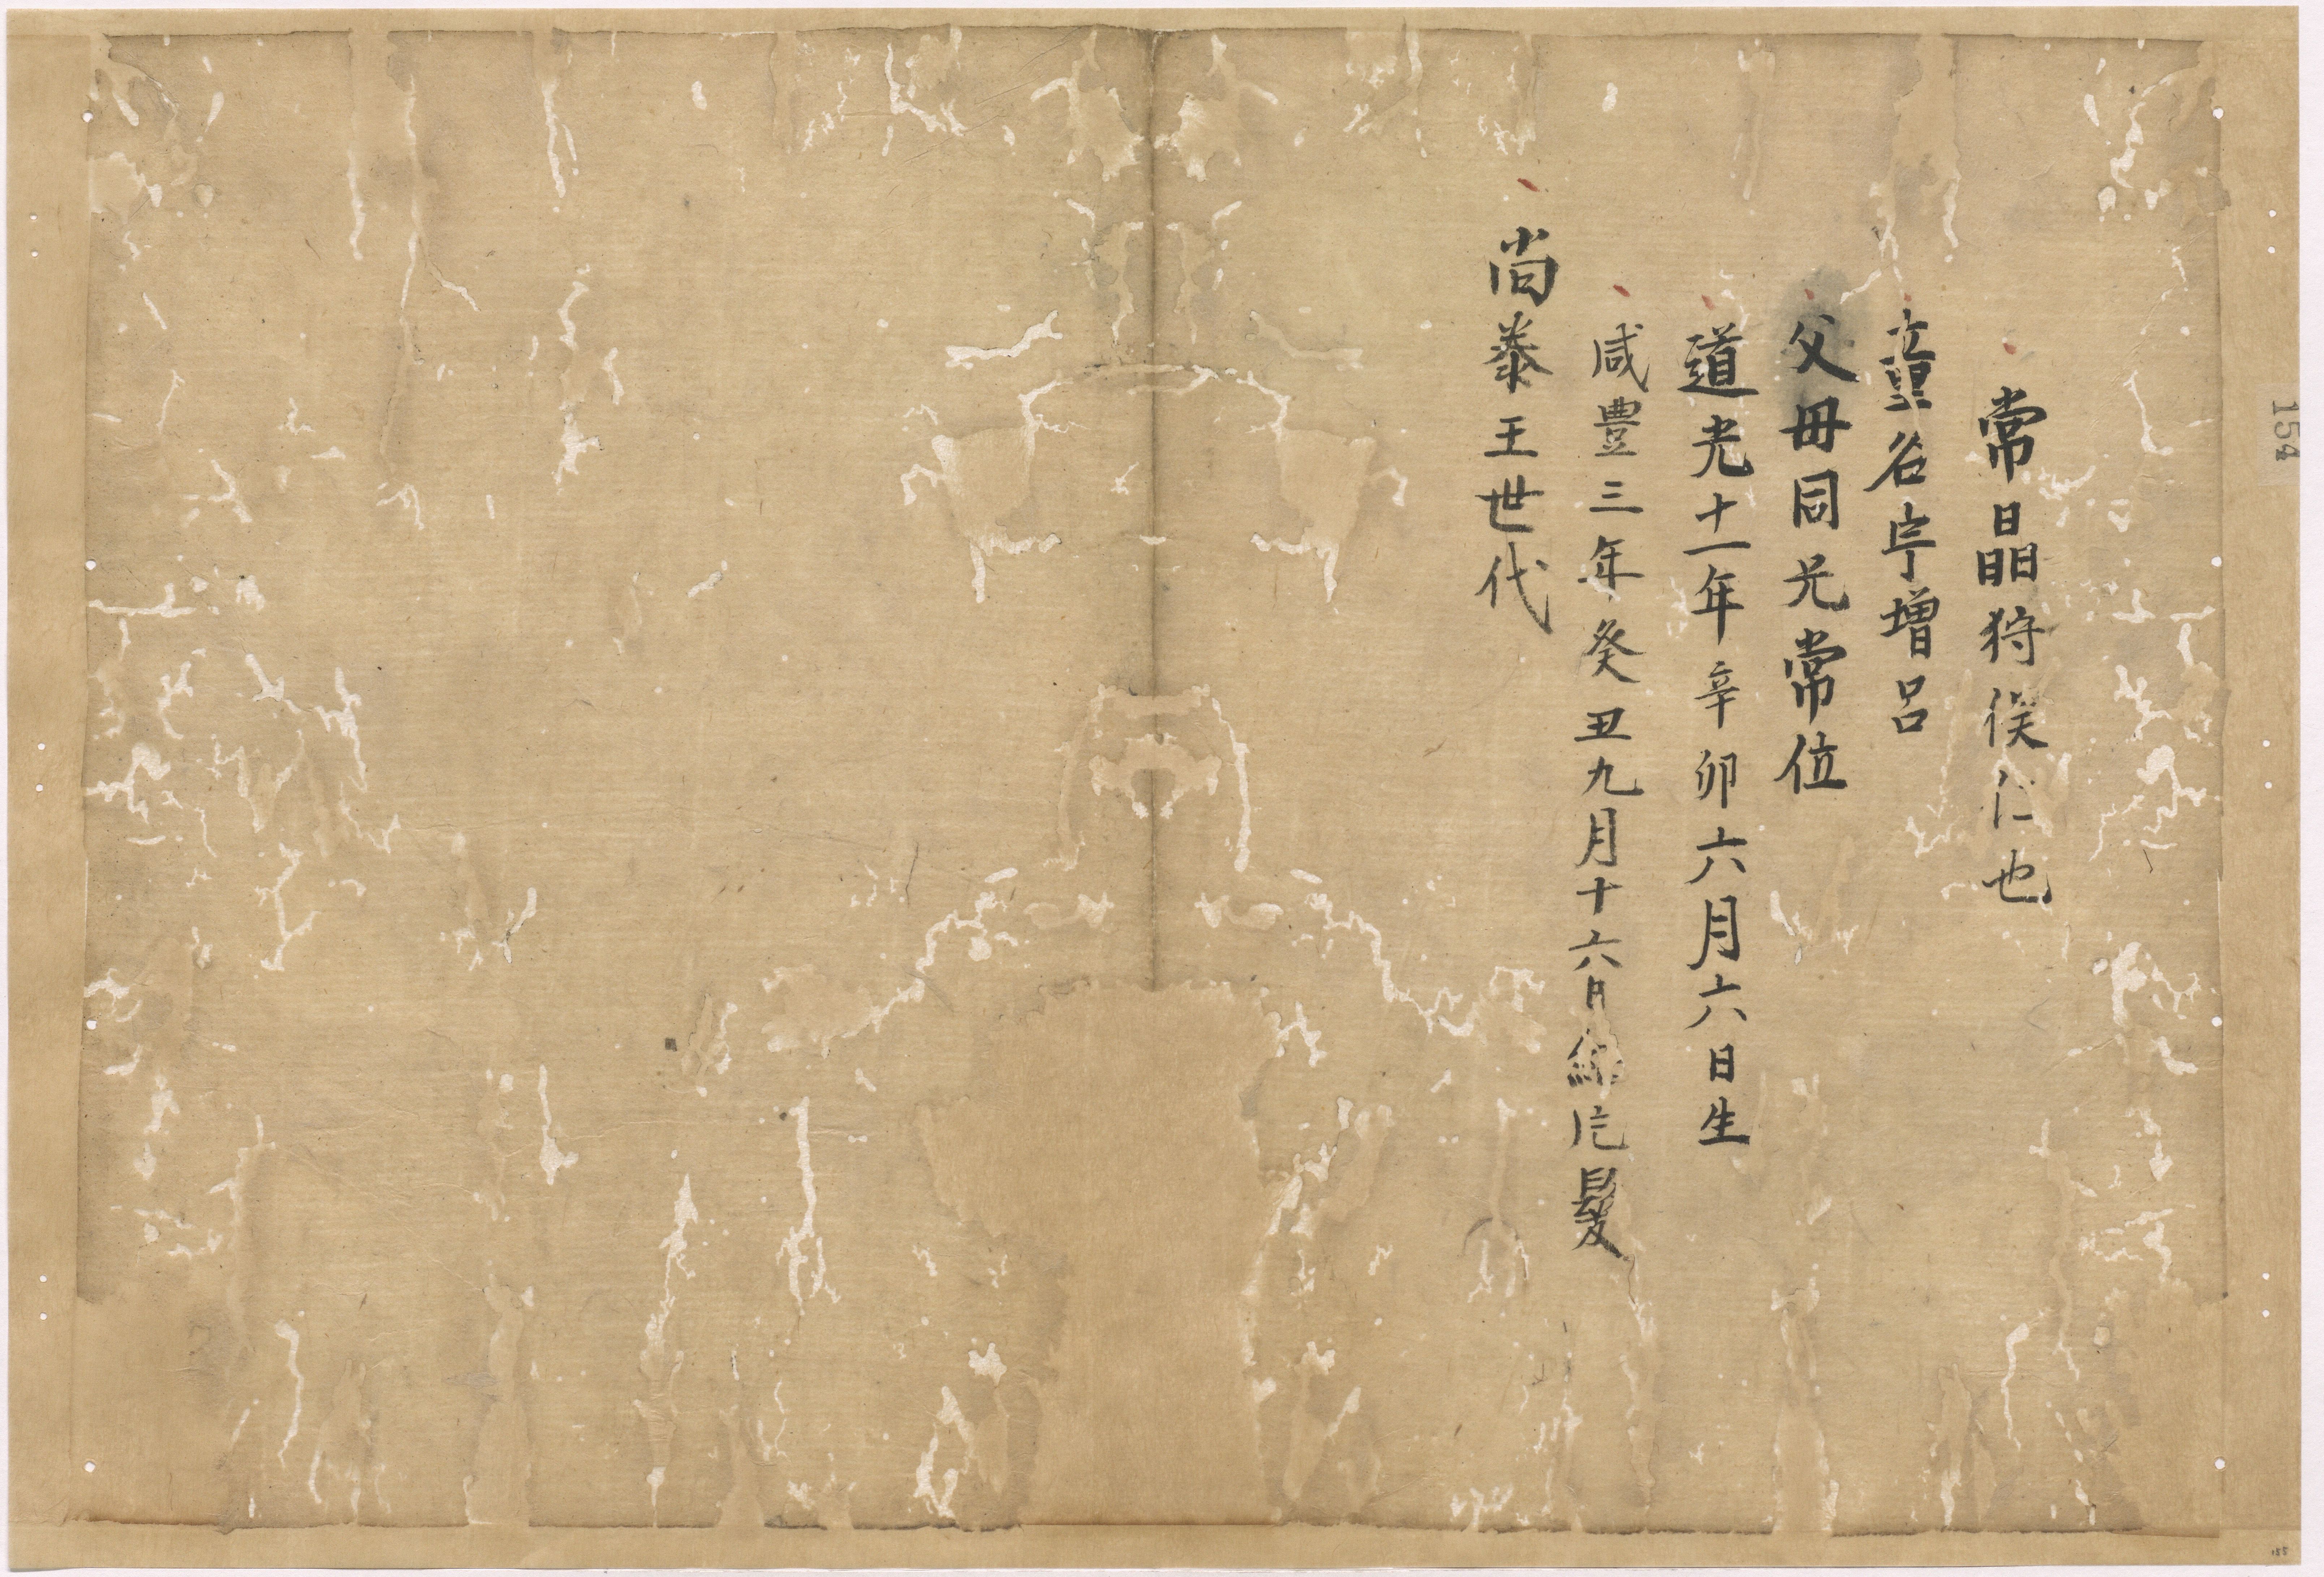 常晶狩俣仁也
童名宇増呂
父母同兄常位
道光十一年辛卯六月六日生
咸豊三年癸丑九月十六日結片髮
尚泰王世代
154